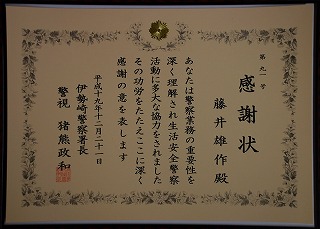 第九一号
感謝状
藤井雄作殿
あなたは警察業務の重要性を
深く理解され生活安全警察
活動に多大な協力をされました
その功労をたたえここに深く
感謝の意を表します
平成十九年十二月二十一日
伊勢崎警察署長
警視 猪熊政和